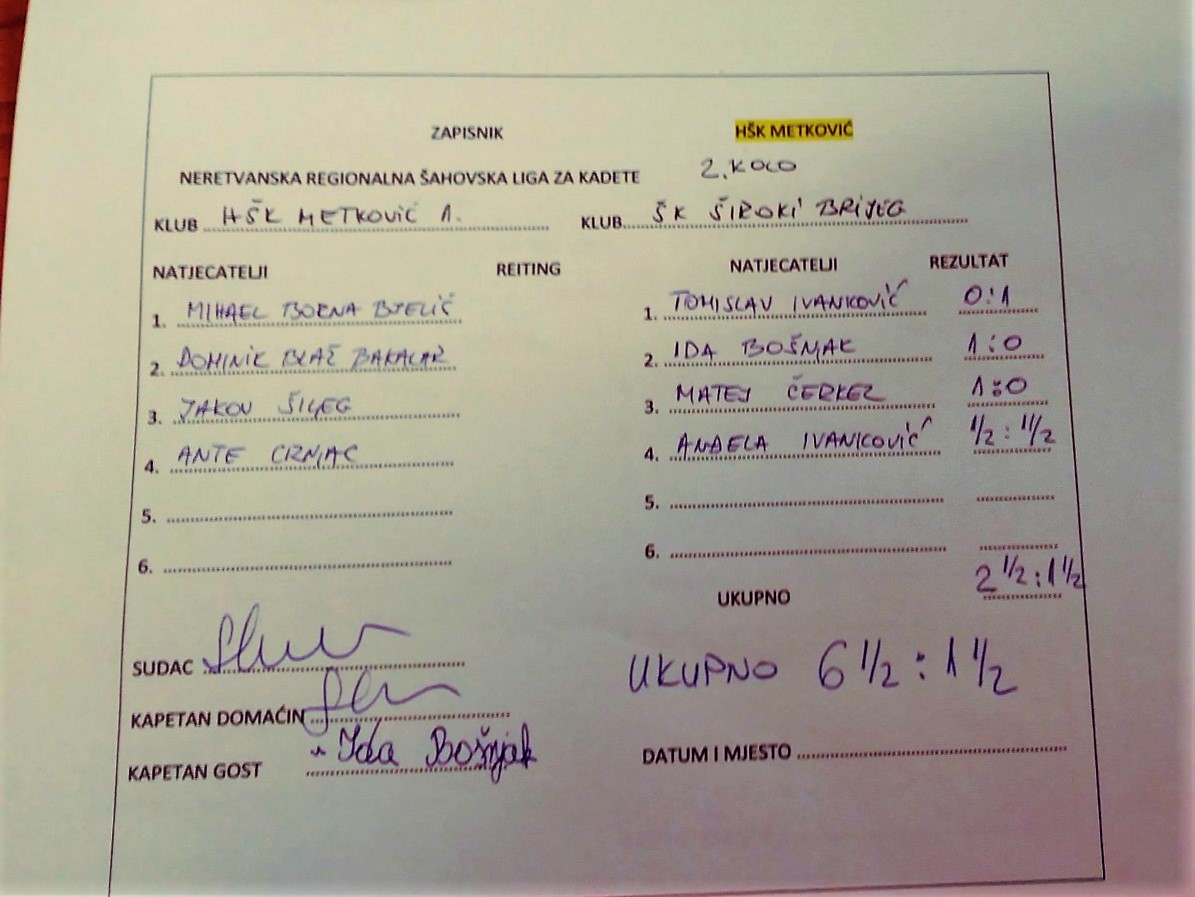 ZAPISNIK HŠK METKOVIĆ
NERETVANSKA REGIONALNA ŠAHOVSKA LIGA ZA KADETE 2. KOLO
KLUB HŠK METKOVIĆ 1. KLUB ŠK ŠIROKI BRIJEG
NATJECATELJI REITING NATJECATELJI REZULTAT
1. MIHAEL BORNA BJELIŠ 1. TOMISLAV IVANKOVIĆ 0:1
2. DOMINIK BLAŽ BAKALAR 2. IDA BOŠNJAK 1:0
3. JAKOV ŠILJEG 3. MATEJ ČERKEZ 1:0
4. ANTE CRNJAC 4. ANĐELA IVANKOVIĆ 1/2 : 1/2
5. 5.
6. 6.
UKUPNO 2 1/2 : 1 1/2
SUDAC
UKUPNO 6 1/2 : 1 1/2
KAPETAN DOMAĆIN
KAPETAN GOST Ida Bošnjak
DATUM I MJESTO